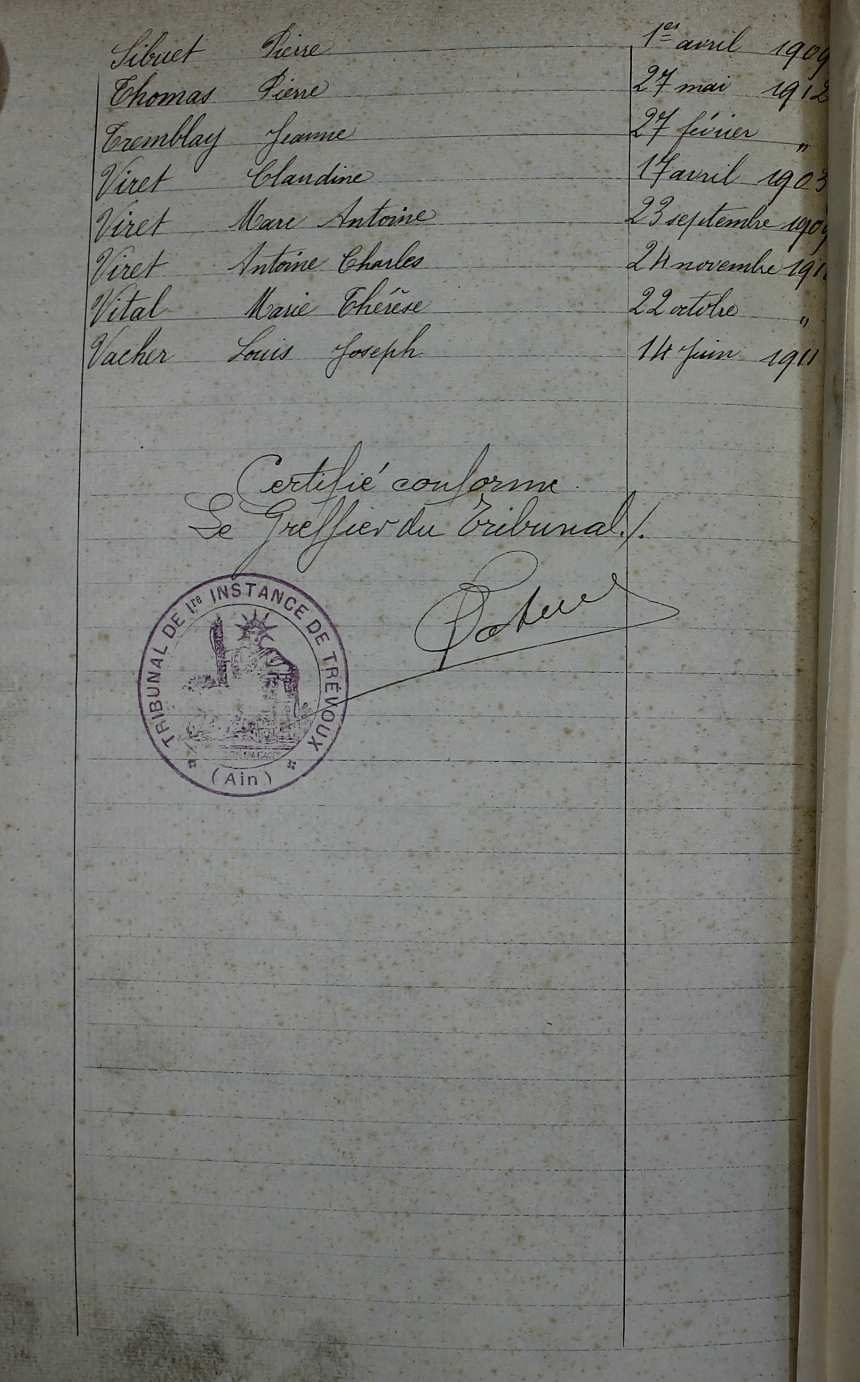 Sibuet Pierre 1er avril 1909
Thomas Pierre 27 mai 1912
Tremblay Jeanne 27 février "
Viret Claudine 17 avril 1903
Viret Marc Antoine 23 septembre
Viret Antoine Charles 24 novembre
Vital Marie Thérèse 22 octobre "
Vacher Louis Joseph 14 Juin 1911
Certifié conforme
Le Greffier du Tribunal./.
TRIBUNAL DE 1re INSTANCE DE TRÉVOUX
(Ain)